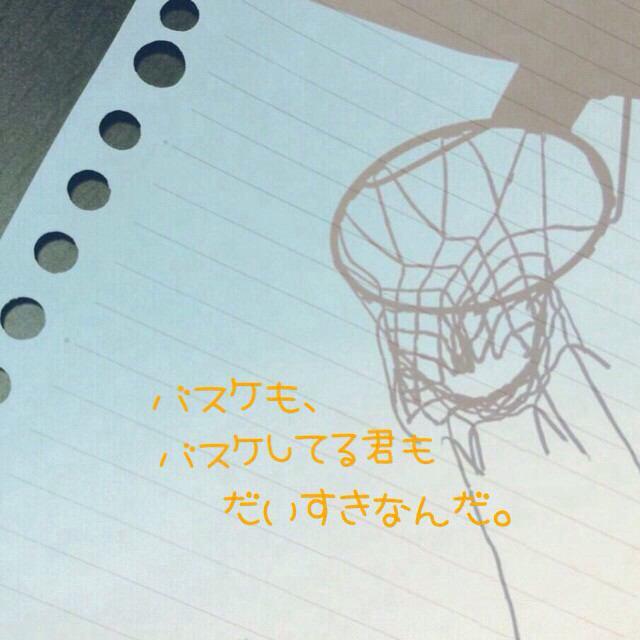 バスケも、
バスケしてる君も
だいすきなんだ。